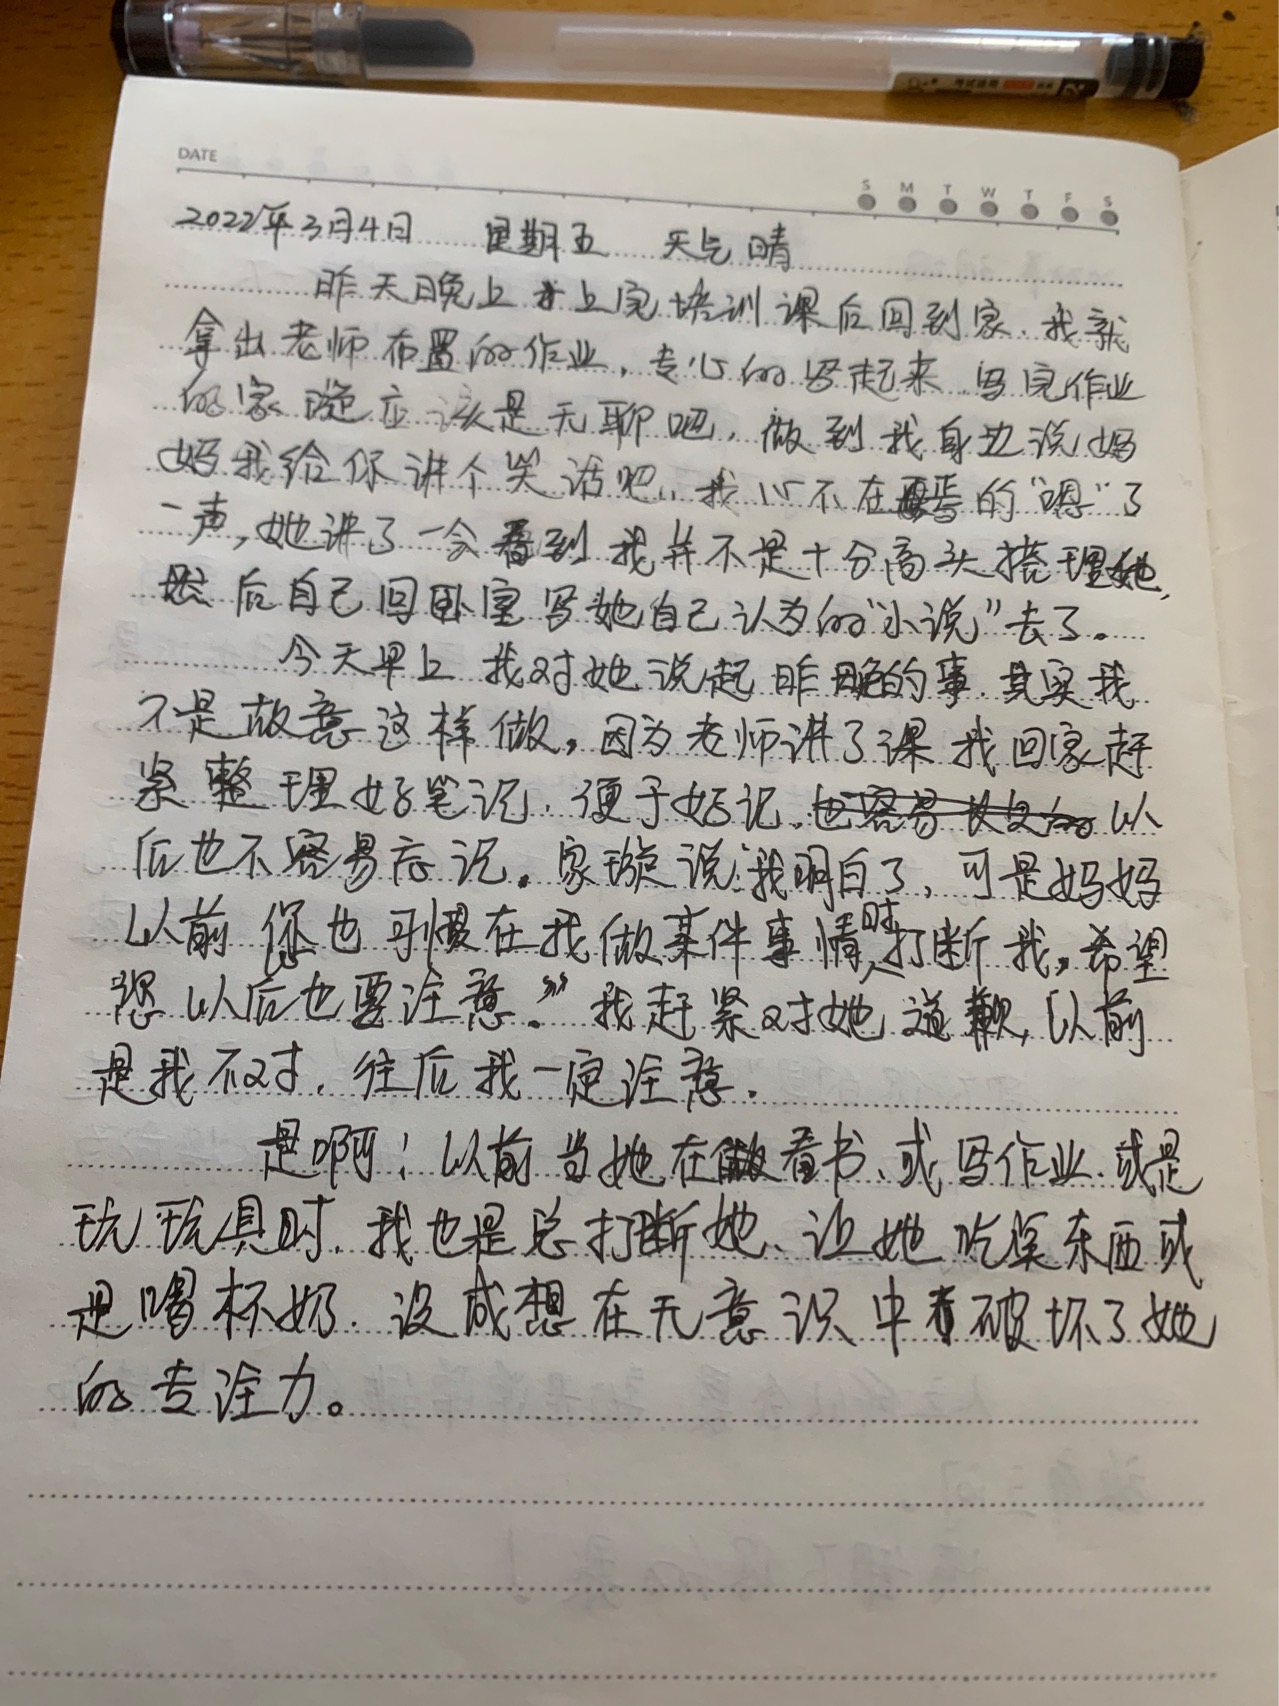 DATE
S M T W T F S
2022年3月4日 星期五 天气晴
昨天晚上上完培训课后回到家.我就
拿出老师布置的作业,专心的写起来.写完作业
的家璇应该是无聊吧,做到我身边说妈
妈我给你讲个笑话吧,我心不在焉的“嗯”了
一声,她讲了一会看到我并不是十分高头搭理她,
然后自己回卧室写她自己认为的“小说”去了。
今天早上我对她说起昨晚的事.其实我
不是故意这样做,因为老师讲了课我回家赶
紧整理好笔记.便于好记.以
后也不容易忘记。家璇说:我明白了,可是妈妈
以前您也习惯在我做某件事情时打断我,希望
您以后也要注意.”我赶紧对她道歉,以前
是我不对.往后我一定注意.
是啊!以前当她在看书、或写作业.或是
玩玩具时.我也是总打断她、让她吃某东西或
是喝杯奶.没成想在无意识中破坏了她
的专注力。